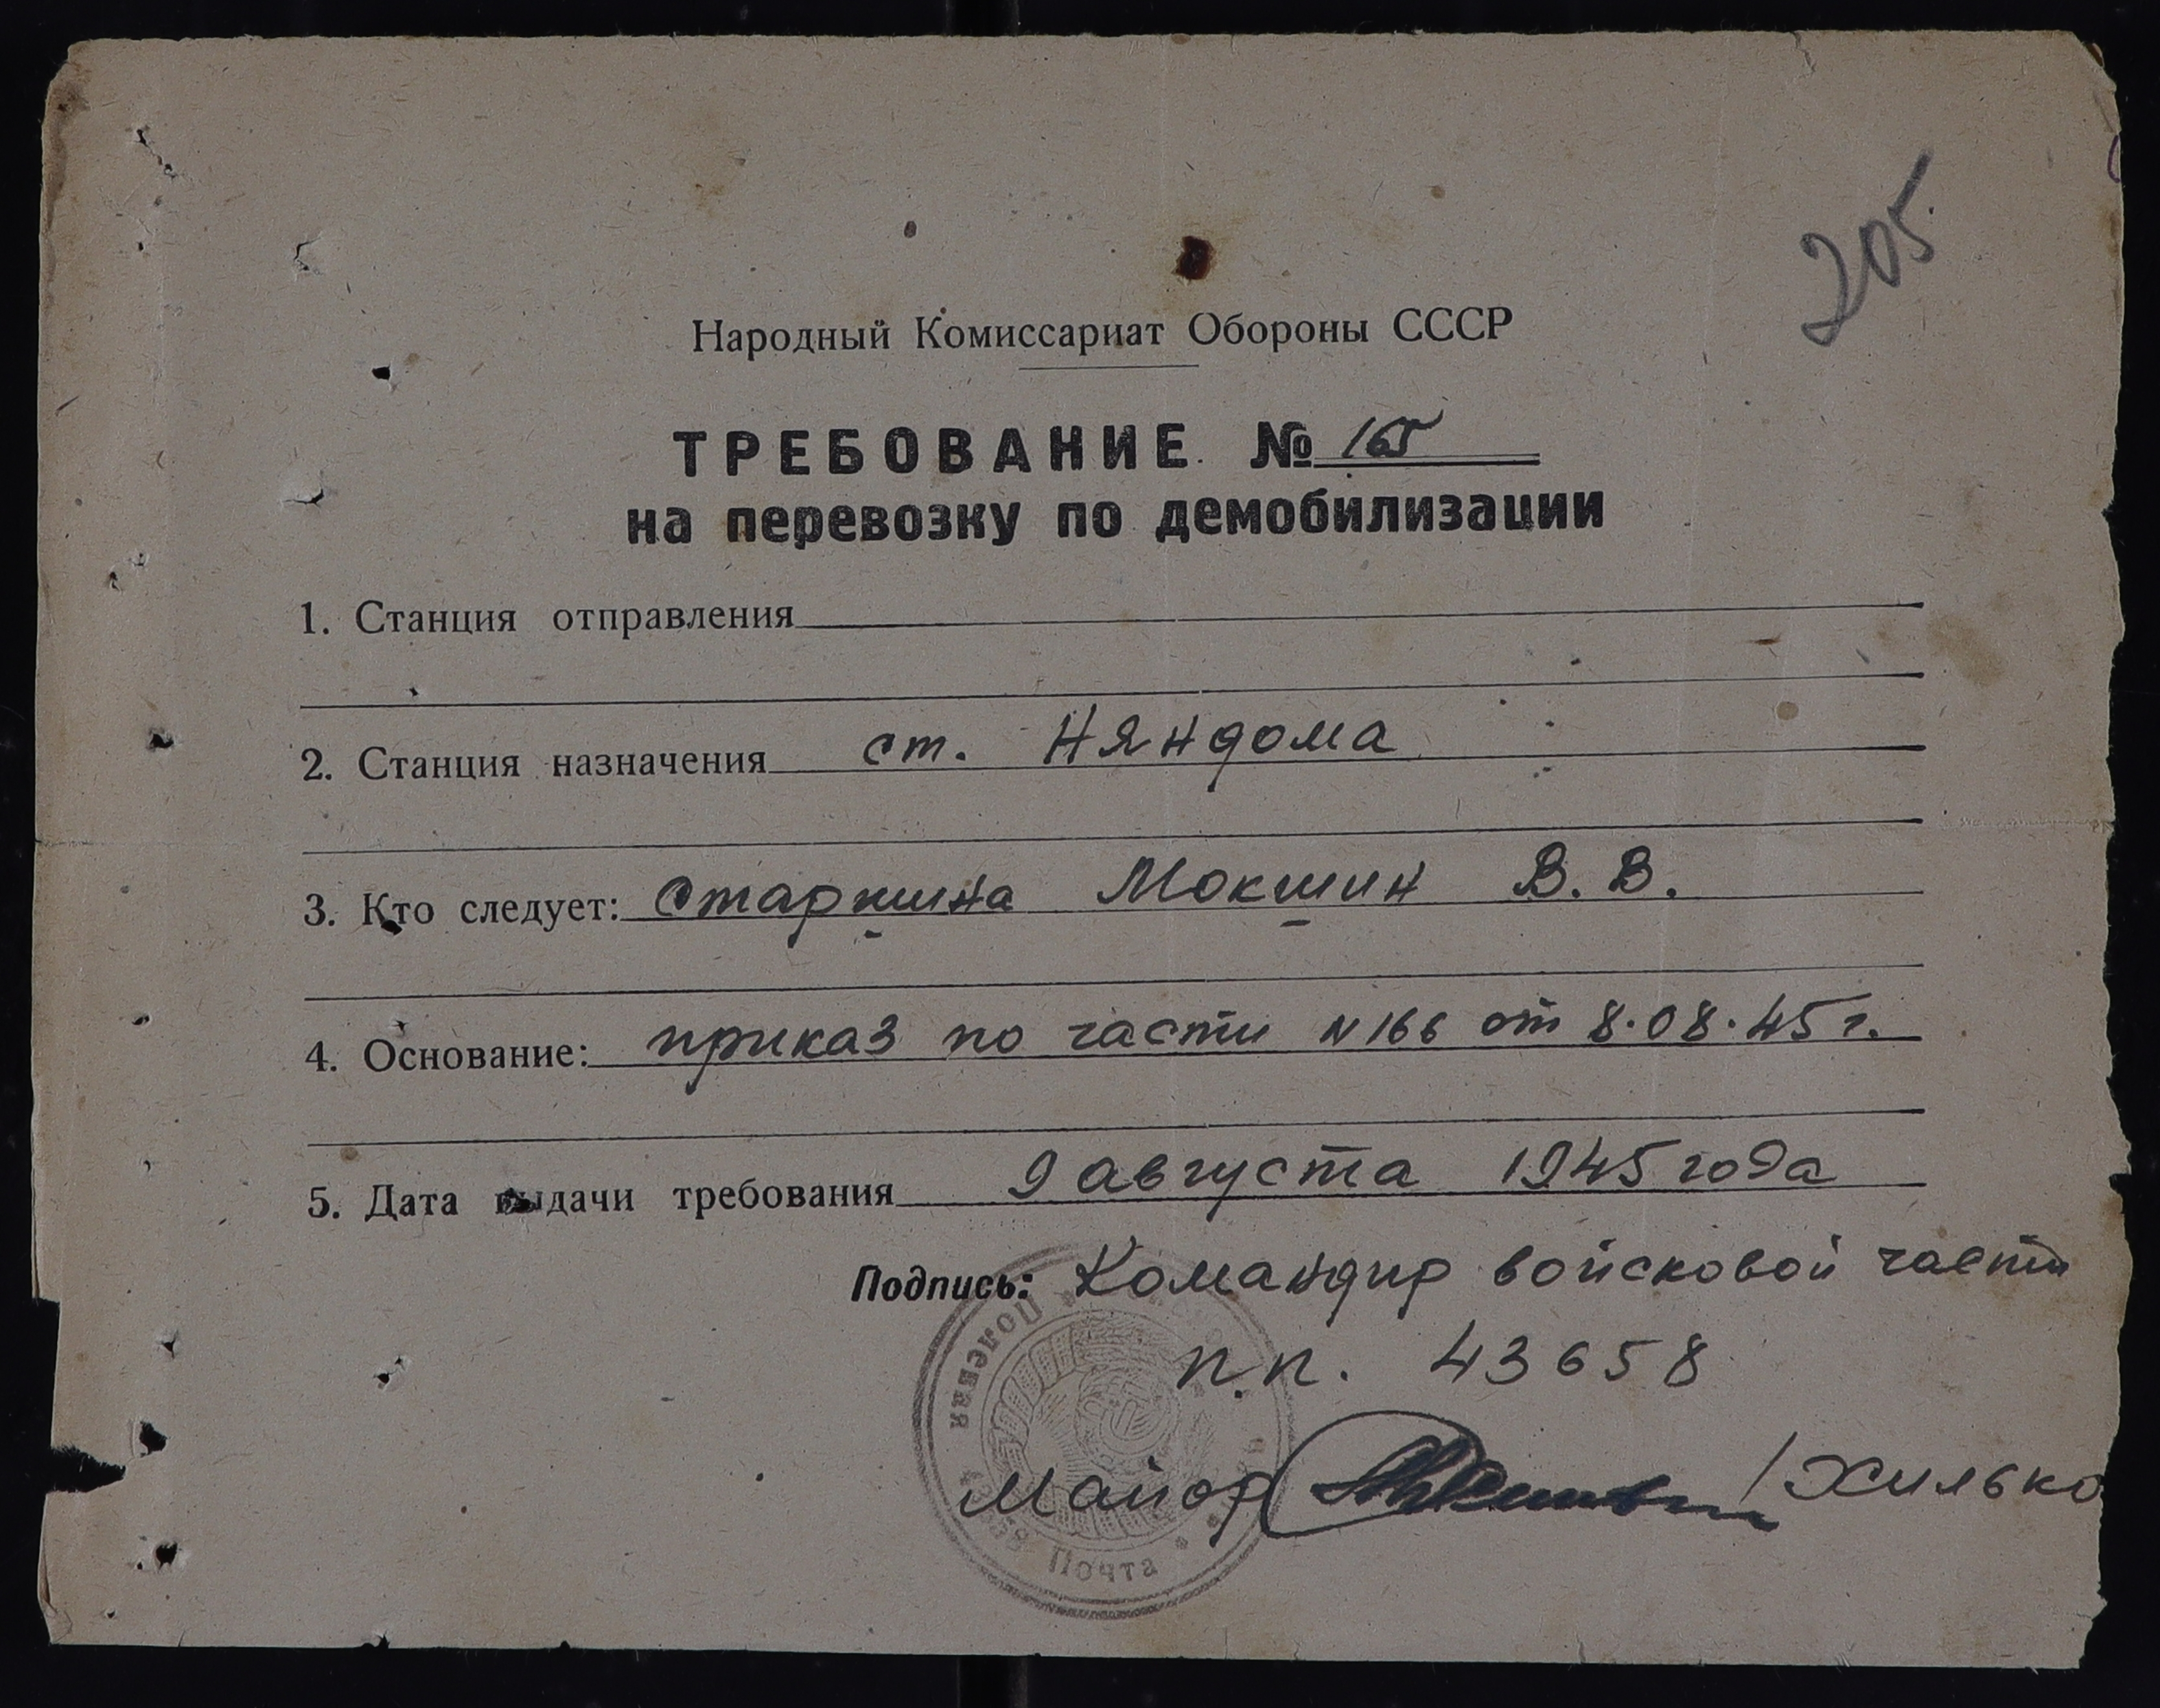 205
Народный Комиссариат Обороны СССР
ТРЕБОВАНИЕ № 165
на перевозку по демобилизации
1. Станция отправления
2. Станция назначения ст. Няндома
3. Кто следует: старшина Мокшин В. В.
4. Основание: приказ по части N 166 от 8.08.45 г.
5. Дата выдачи требования 9 августа 1945 года
Подпись: Командир войсковой части
п.п. 43658
Майор /Хилько
Полевая
Почта